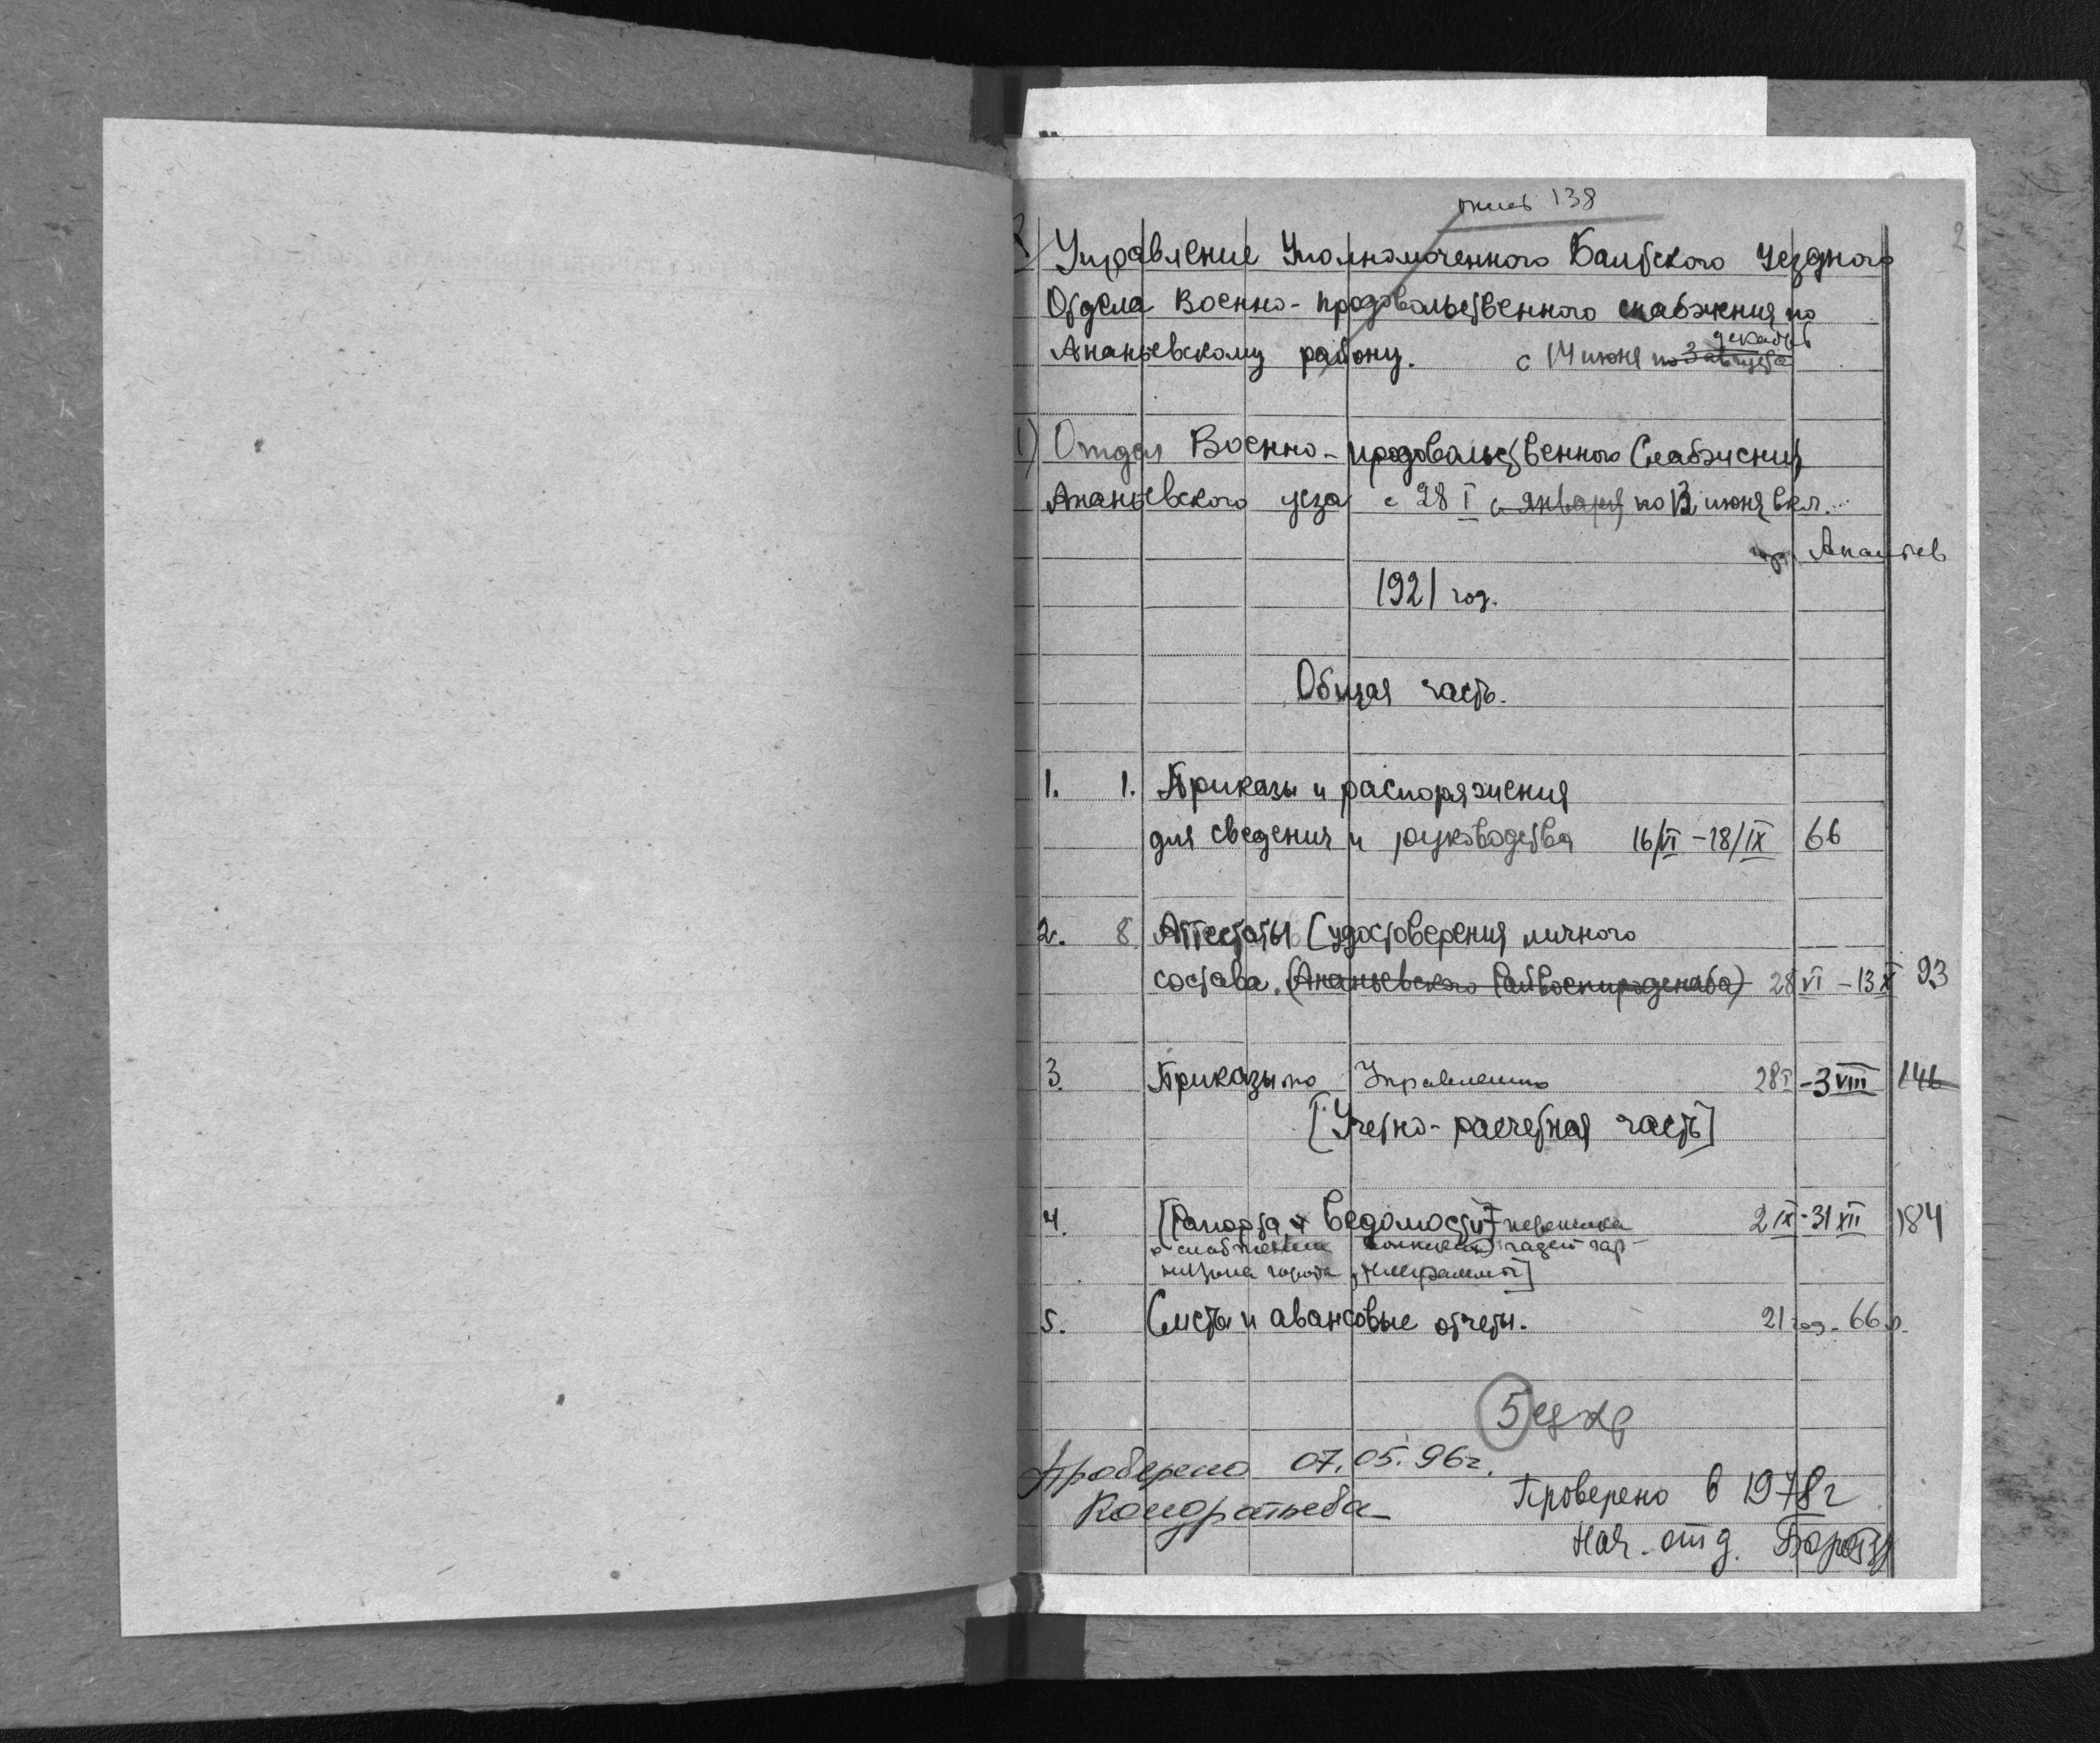 опись 138
2
2) Управление Уполномоченного Балтского Уездного
Отдела Военно-продовольственного снабжения по
Ананьевскому району. с 14 июня по 3 августа декабрь
1) Отдел Военно-продовольственного Снабжения
Ананьевского уезда с 28 I с января по 13 июня вкл.
гор. Ананьев
1921 год.
Общая часть.
1. 1. Приказы и распоряжения
для сведения и руководства 16/VI – 18/IX 66
2. 8 Аттестаты [удостоверения личного
состава. (Ананьевского Райвоенпродснаба) 28 VI – 13 X 93
3. Приказы по Управлению 28 I – 3 VIII 146
[Учетно-расчетная часть]
4. [Рапорта и ведомости] переписка 2 IX - 31 XII 184
о снабжении воинских частей гар-
низона города
5. Сметы и авансовые отчеты. 21 год. 66 л.
5 ед хр
Проверено 07.05.96г.
Кондратьева
Проверено в 1978г
Нач. отд.